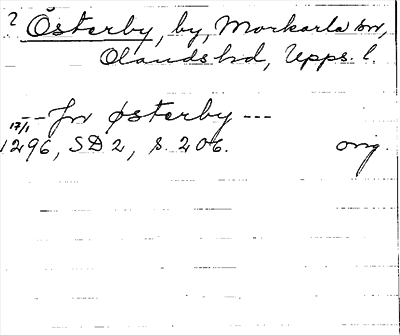 ? Österby, by, Morkarla sn,
Olands hd, Upps. l.
--- jn østerby ---
17/1
1296, SD 2, s. 206. orig.